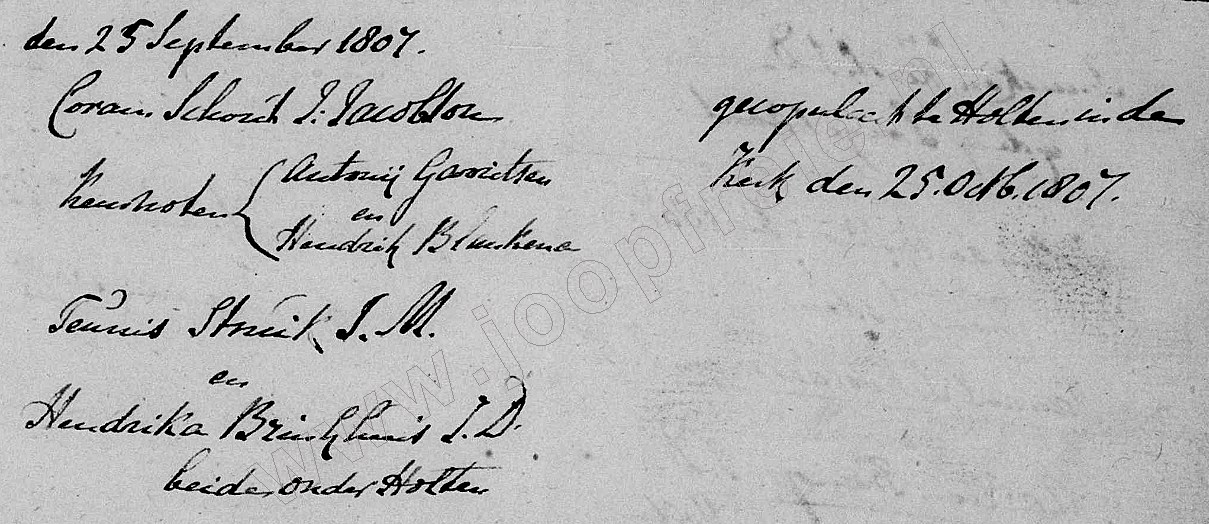 den 25 September 1807.
Coram Schout J. Jacobson
Keurnoten
Antonij Gerritsen
en
Hendrik Blankena
Teunis Struik J. M.
en
Hendrika Brinkhuis J. D.
beide onder Holten
gecopuleert te Holten in de
Kerk den 25. Octb. 1807.
www.joopfreje.nl